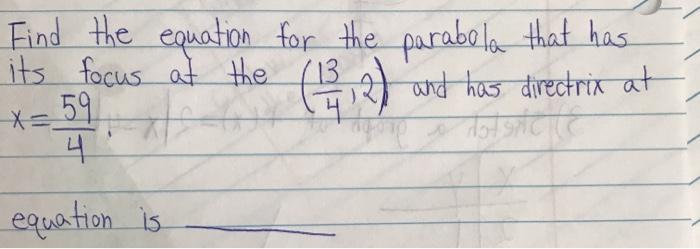 Find the equation for the parabola that has
its focus at the (13/4, 2) and has directrix at
x = 59/4.
equation is ______